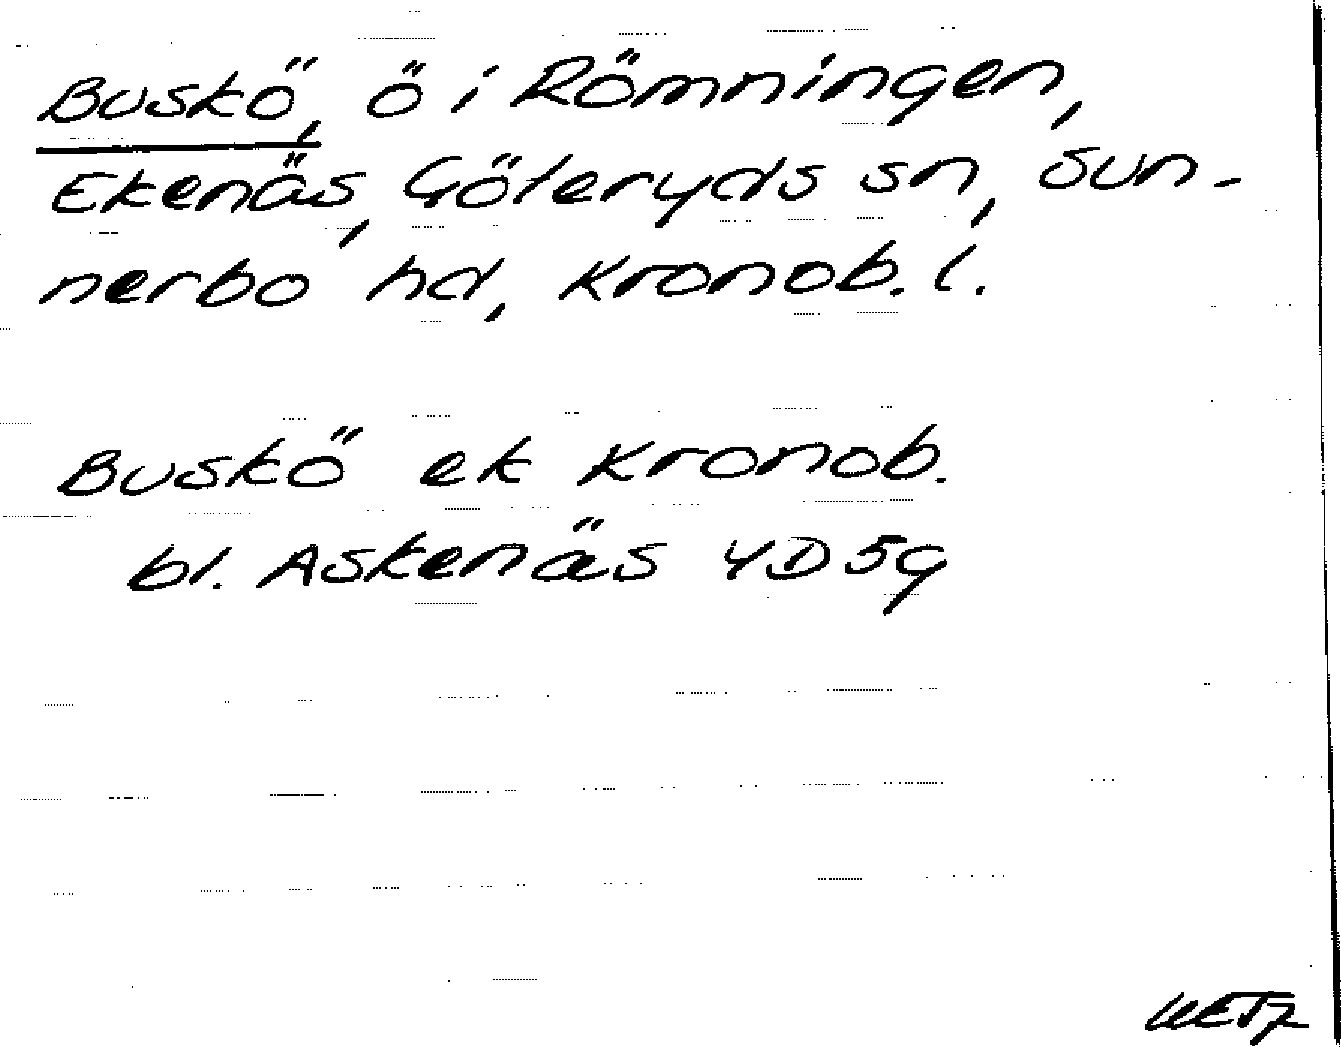 Buskö, ö i Römningen,
Ekenäs, Göteryds sn, Sun-
nerbo hd, Kronob. l.
Buskö ek Kronob.
bl. Askenäs 4D5g